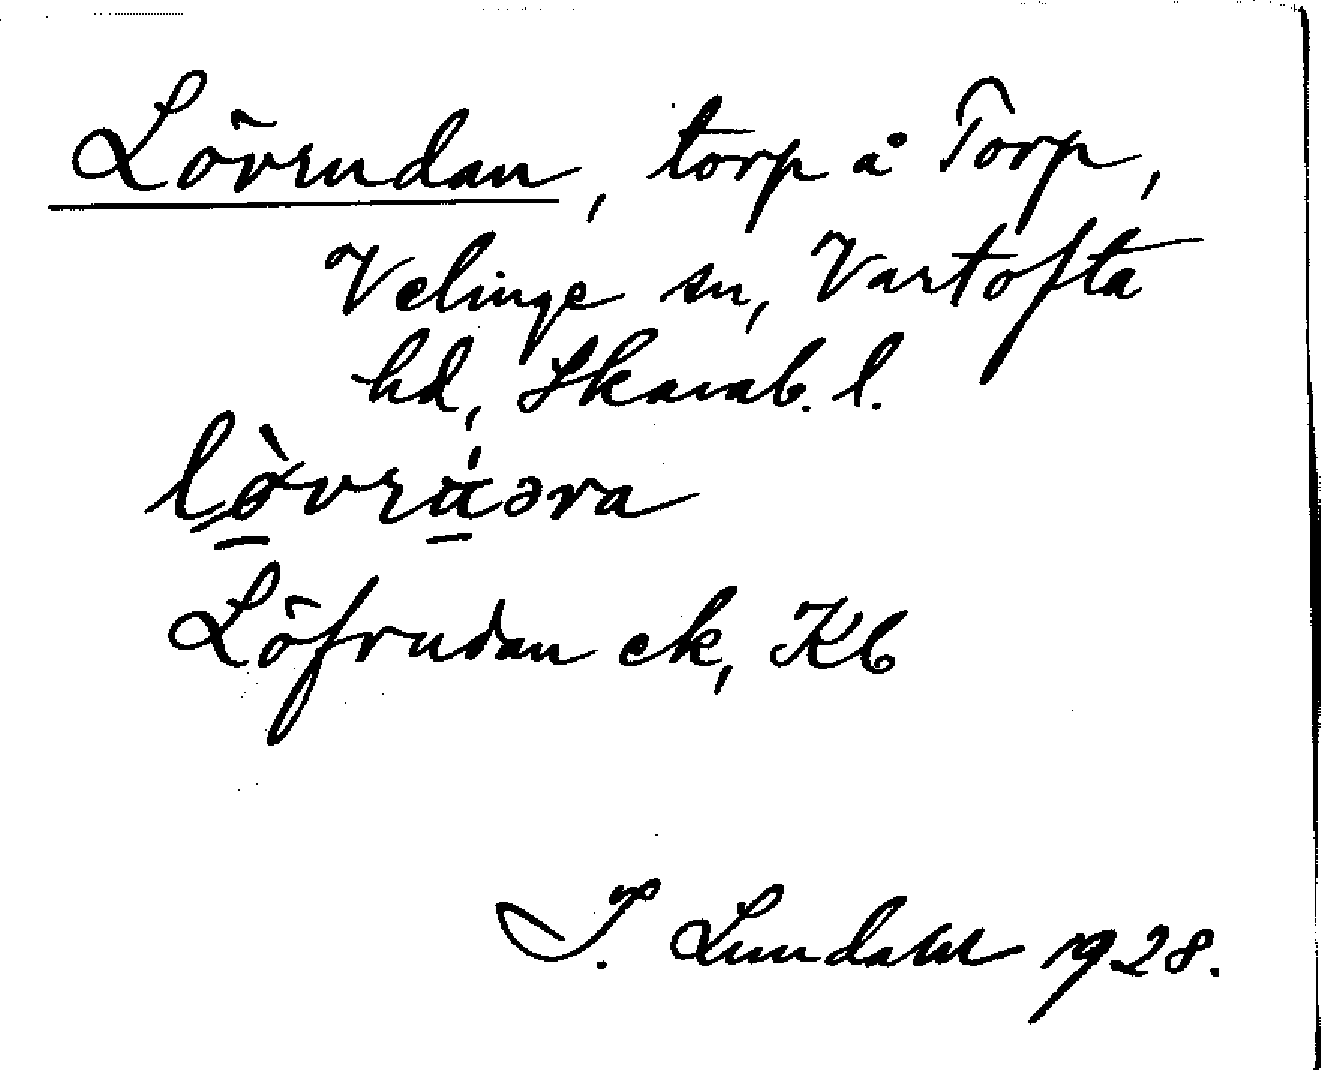 Lövrudan, torp å Torp,
Velinge sn, Vartofta
hd, Skarab. l.
Löfrudan ek, Kb
I. Lundahl 1928.